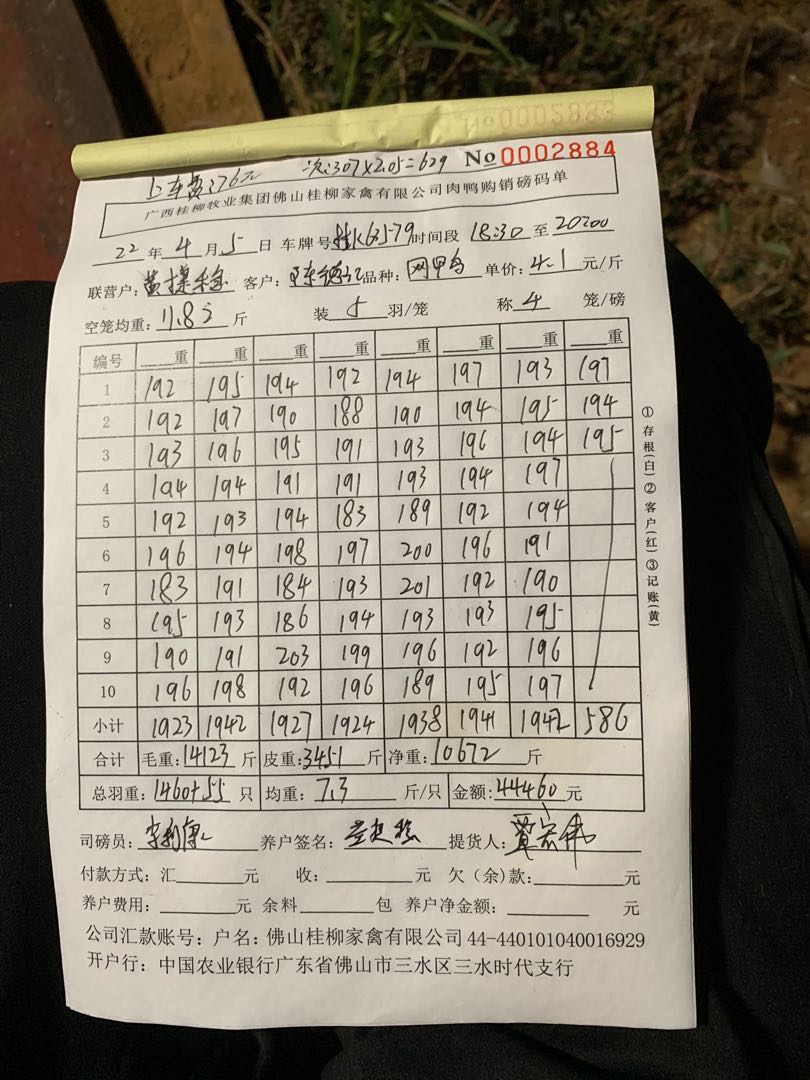 No 0002883
上车费:376元 次:307×2.05=629 No 0002884
广西桂柳牧业集团佛山桂柳家禽有限公司肉鸭购销磅码单
22 年 4 月 5 日 车牌号 桂K63579 时间段 18:30 至 20:00
联营户: 黄 客户: 陈 品种: 单价: 4.1 元/斤
空笼均重: 11.82 斤 装 5 羽/笼 称 4 笼/磅
编号 重 重 重 重 重 重 重 重
1 192 195 194 192 194 197 193 197
2 192 197 190 188 190 194 195 194
3 193 196 195 191 193 196 194 195
4 194 194 191 191 193 194 197
5 192 193 194 183 189 192 194
6 196 194 198 197 200 196 191
7 183 191 184 193 201 192 190
8 195 193 186 194 193 193 195
9 190 191 203 199 196 192 196
10 196 198 192 196 189 195 197
小计 1923 1942 1927 1924 1938 1941 1942 586
合计 毛重: 14123 斤 皮重: 3451 斤 净重: 10672 斤
总羽重: 1460+55 只 均重: 7.3 斤/只 金额: 44460 元
司磅员: 养户签名: 提货人:
付款方式: 汇 元 收: 元 欠(余)款: 元
养户费用: 元 余料 包 养户净金额: 元
公司汇款账号: 户名: 佛山桂柳家禽有限公司 44-440101040016929
开户行: 中国农业银行广东省佛山市三水区三水时代支行
①存根(白)②客户(红)③记账(黄)